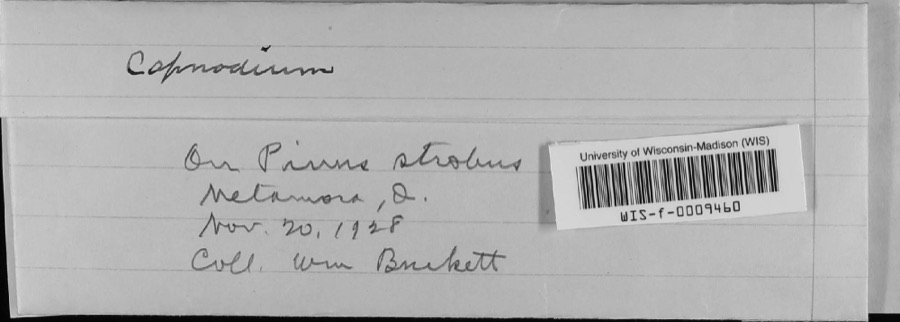 Capnodium
On Pinus strobus
Metamora, O.
Nov. 20, 1928
Coll. Wm
University of Wisconsin-Madison (WIS)
WIS-f-0009460